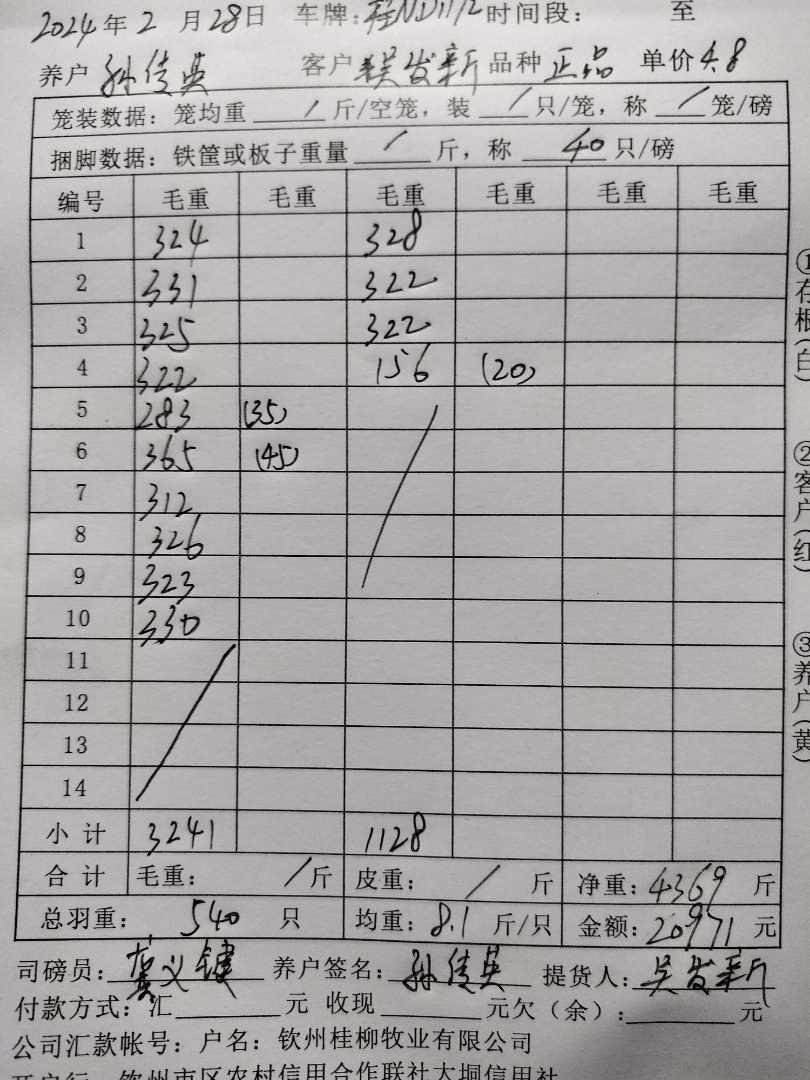 2024年2月28日 车牌: 时间段: 至
养户 孙传英 客户 吴发新 品种 正品 单价 4.8
笼装数据: 笼均重 / 斤/空笼, 装 / 只/笼, 称 / 笼/磅
捆脚数据: 铁筐或板子重量 / 斤, 称 40 只/磅
编号 毛重 毛重 毛重 毛重 毛重 毛重
1 324 328
2 331 322
3 325 322
4 322 156 (20)
5 283 (35)
6 365 (45)
7 312
8 326
9 323
10 330
11
12
13
14
小计 3241 1128
合计 毛重: / 斤 皮重: / 斤 净重: 4369 斤
总羽重: 540 只 均重: 8.1 斤/只 金额: 20971 元
司磅员: 养户签名: 孙传英 提货人: 吴发新
付款方式: 汇 元 收现 元欠(余): 元
公司汇款帐号: 户名: 钦州桂柳牧业有限公司
开户行: 钦州市区农村信用合作联社大垌信用社
①存根(白) ②客户(红) ③养户(黄)